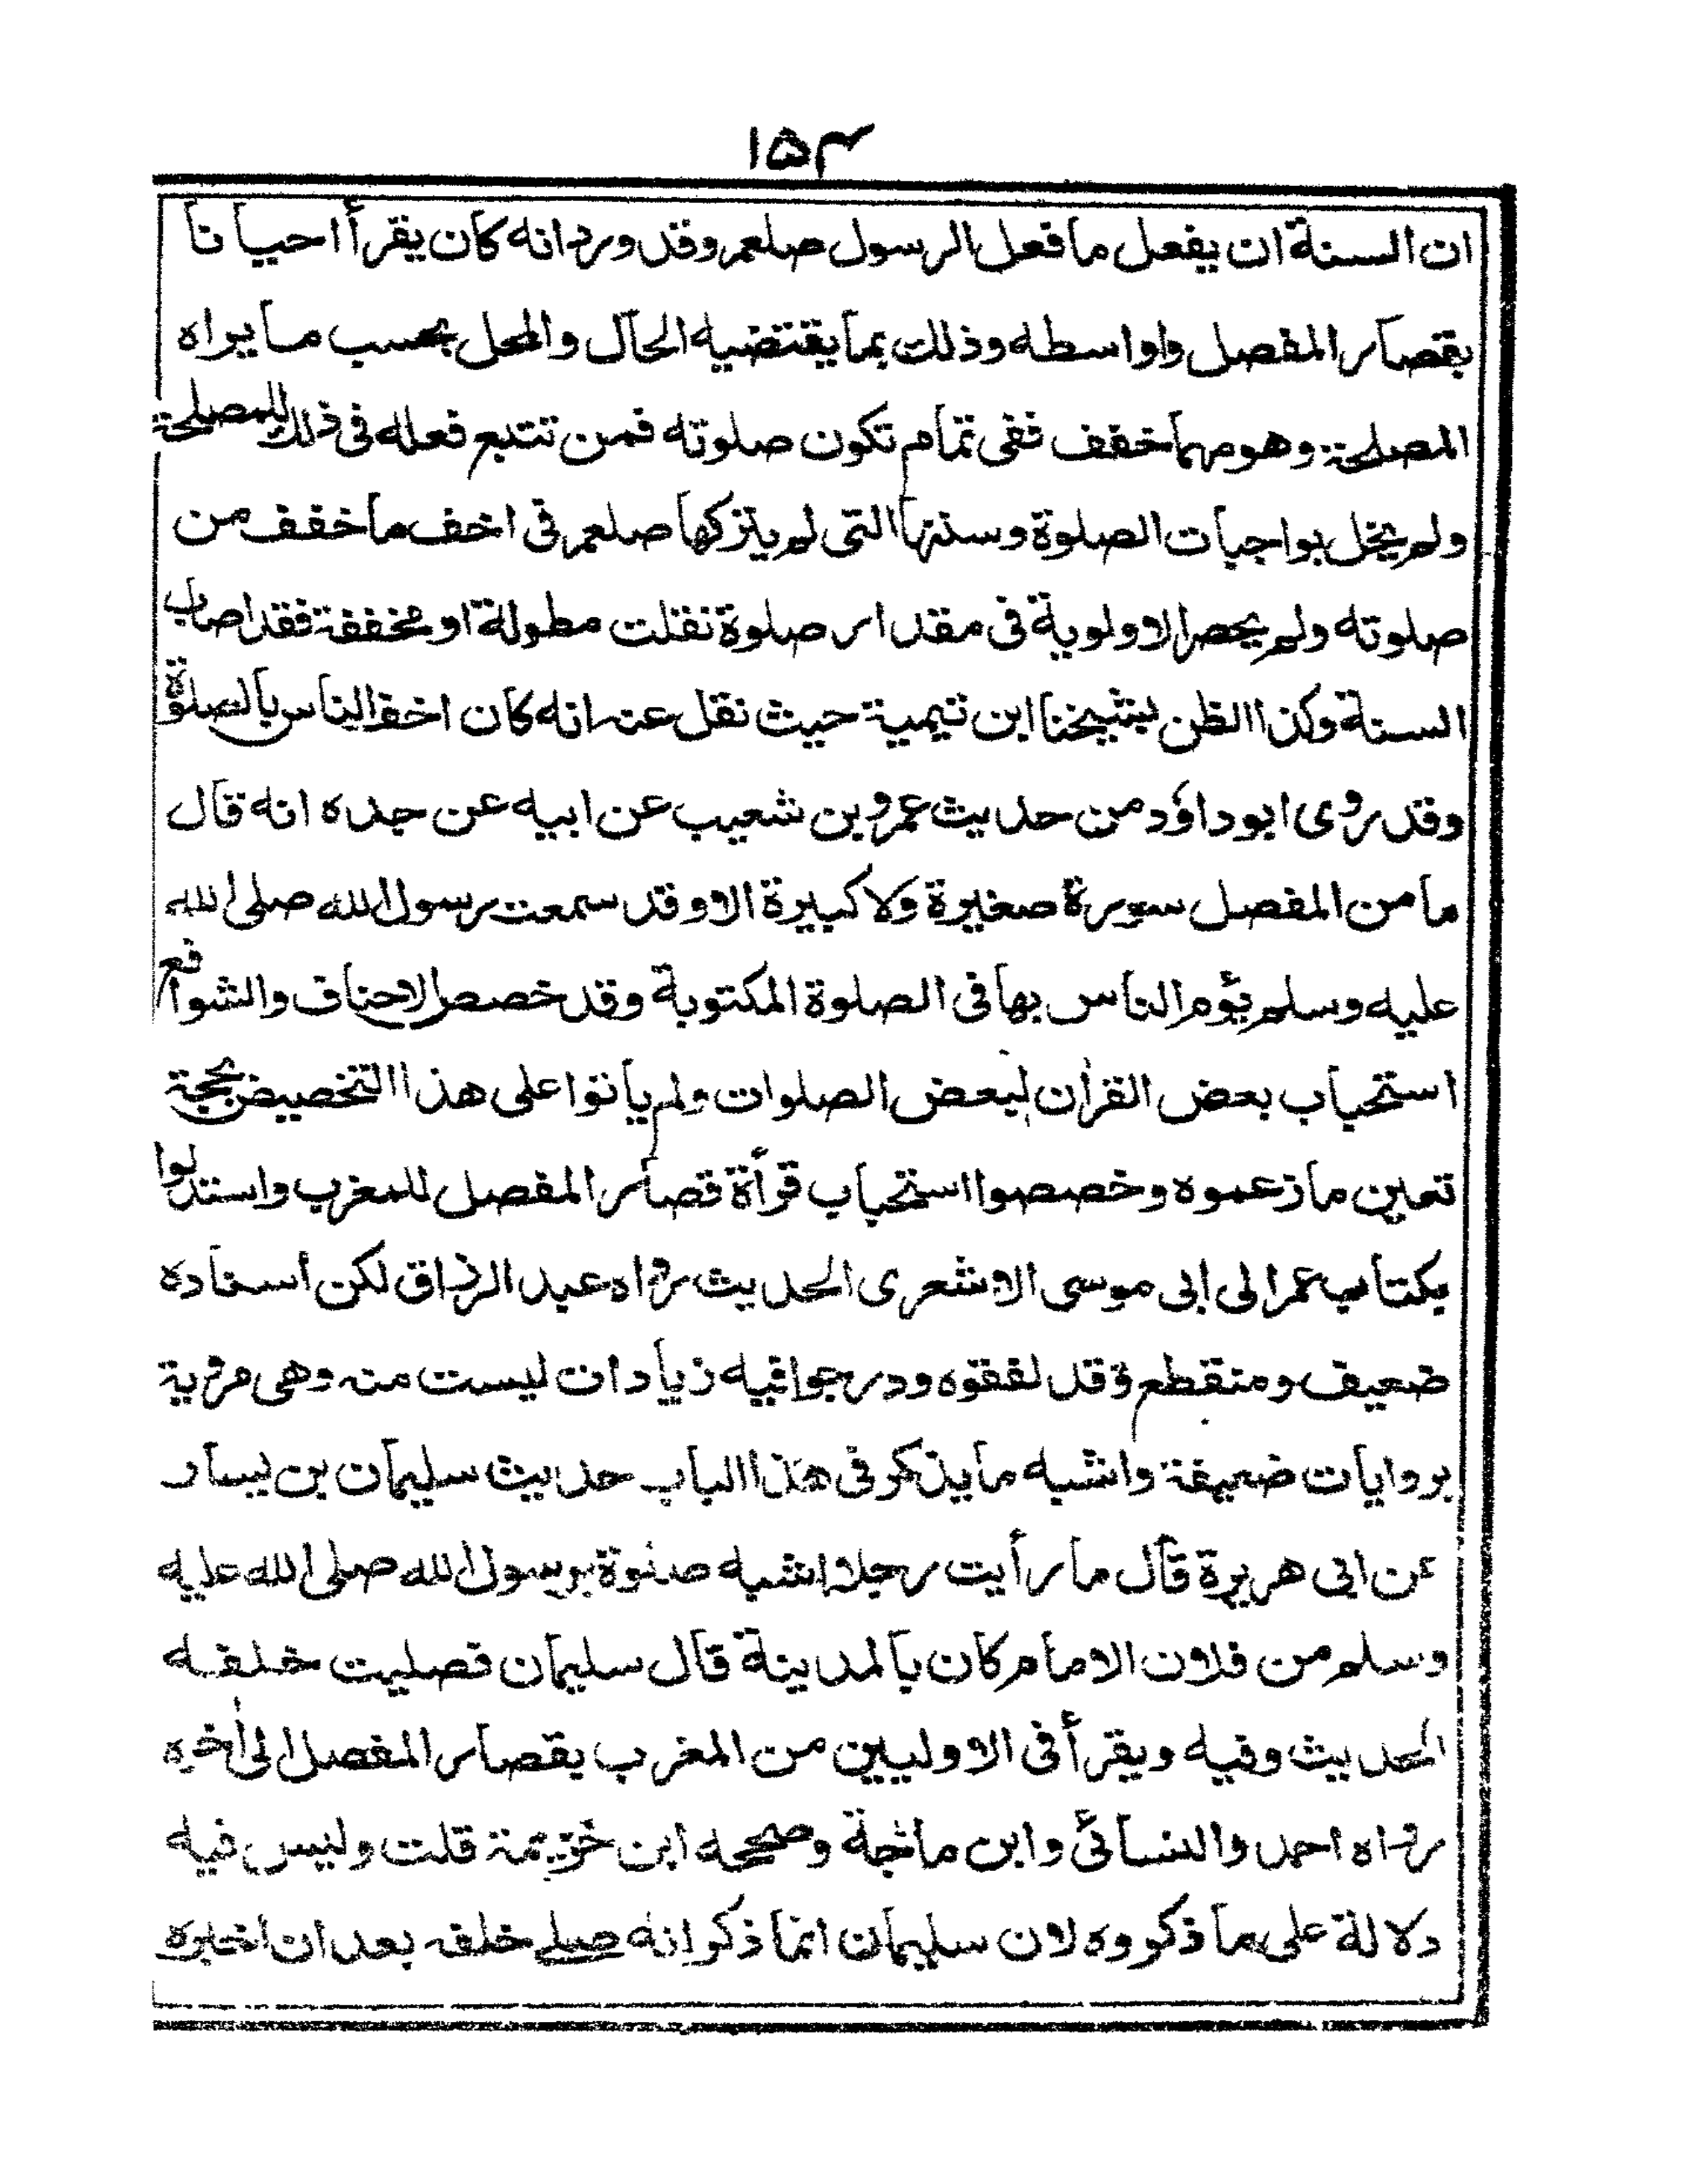 ۱۵۴
ان السنة ان يفعل ما فعل الرسول صلعم وقد ورد انه كان يقرأ احيانا
بقصار المفصل واواسطه وذلك بما يقتضيه الحال والمحل بحسب ما يراه
المصلحة وهو مهما خفف ففى تمام تكون صلوته فمن تتبع فعله فى ذلك للمصلحة
ولم يخل بواجبات الصلوة وسننها التى لم يتركها صلعم فى اخف ما خفف من
صلوته ولم يحصر الاولوية فى مقدار صلوة نقلت مطولة او مخففة فقد اصاب
السنة وكذا الظن بشيخنا ابن تيمية حيث نقل عنه انه كان اخف الناس بالصلوة
وقد روى ابو داؤد من حديث عمرو بن شعيب عن ابيه عن جده انه قال
ما من المفصل سورة صغيرة ولا كبيرة الا وقد سمعت رسول الله صلى الله
عليه وسلم يؤم الناس بها فى الصلوة المكتوبة وقد خصص الاحناف والشوافع
استحباب بعض القران لبعض الصلوات ولم يأتوا على هذا التخصيص بحجة
تعين ما زعموه وخصصوا استحباب قرأة قصار المفصل للمغرب واستدلوا
بكتاب عمر الى ابى موسى الاشعرى الحديث رواه عبد الرزاق لكن اسناده
ضعيف ومنقطع وقد لفقوه ودرجوا فيه زيادات ليست منه وهى مروية
بروايات ضعيفة واشبه ما يذكر فى هذا الباب حديث سليمان بن يسار
عن ابى هريرة قال ما رأيت رجلا اشبه صلوة برسول الله صلى الله عليه
وسلم من فلان الامام كان بالمدينة قال سليمان فصليت خلفه
الحديث وفيه ويقرأ فى الاوليين من المغرب بقصار المفصل الى أخره
رواه احمد والنسائى وابن ماجة وصححه ابن خزيمة قلت وليس فيه
دلالة على ما ذكروه لان سليمان انما ذكر انه صلى خلفه بعد ان اخبره